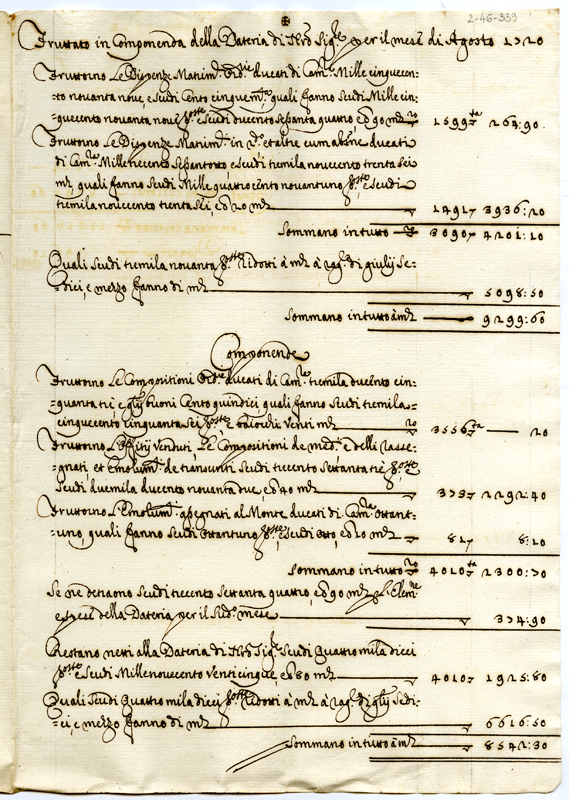 2-46-339
✠
Fruttato in Componenda della Dateria di Nrō Sig.re per il mese di Agosto 1720
Fruttorno Le Dispenze Matrim. Ord.rie ducati di Cam.ra Mille cinquecen-
-to novanta nove, e scudi Cento cinque m.ta quali fanno Scudi Mille cin-
-quecento novanta nove e scudi ducento sessanta quattro ed 90 m.ta 1599 264:90
Fruttorno Le Dispenze Matrim. in et altre cum absne ducati
di Cam.ra Mille trecento e scudi tremila novecento trenta sei
m.ta, quali fanno Scudi Mille quattro cento novantuno e scudi
tremila novecento trenta sei, ed 20 m.ta 1491 3936:20
Sommano in tutto 3090 4201:10
Quali Scudi tremila novanta ridotti à m.ta à rag. di giulij Se-
-dici, e mezzo fanno di m.ta 5098:50
Sommano in tutto à m.ta 9299:60
Componende
Fruttorno Le Compositioni Ord.rie ducati di Cam.ra tremila ducento cin-
-quanta tre e gli buoni Cento quindici quali fanno Scudi tremila-
cinquecento cinquanta sei e baiocchi Venti m.ta 3556 — 20
Fruttorno L'Offitij Venduti, Le Compositioni de med. e delli rasse-
-gnati, et Emolum. de transunti Scudi trecento settanta tre
Scudi duemila ducento novanta due, ed 40 m.ta 373 2292:40
Fruttorno L'Emolum. assegnati al Monte ducati di Cam.ra ottant-
-uno, quali fanno Scudi ottantuno e scudi otto, ed 10 m.ta 81 8:10
Sommano in tutto 4010 2300:70
Se ne detraono Scudi trecento settanta quattro, ed 90 m.ta
e spese della Dateria per il Sud. mese 374:90
Restano netti alla Dateria di Nrō Sig.re Scudi Quattro mila dieci
e Scudi Mille novecento Venticinque, ed 80 m.ta 4010 1925:80
Quali Scudi Quattro mila dieci ridotti à m.ta à rag. di giulij Sedi-
-ci, e mezzo fanno di m.ta 6616:50
Sommano in tutto à m.ta 8542:30